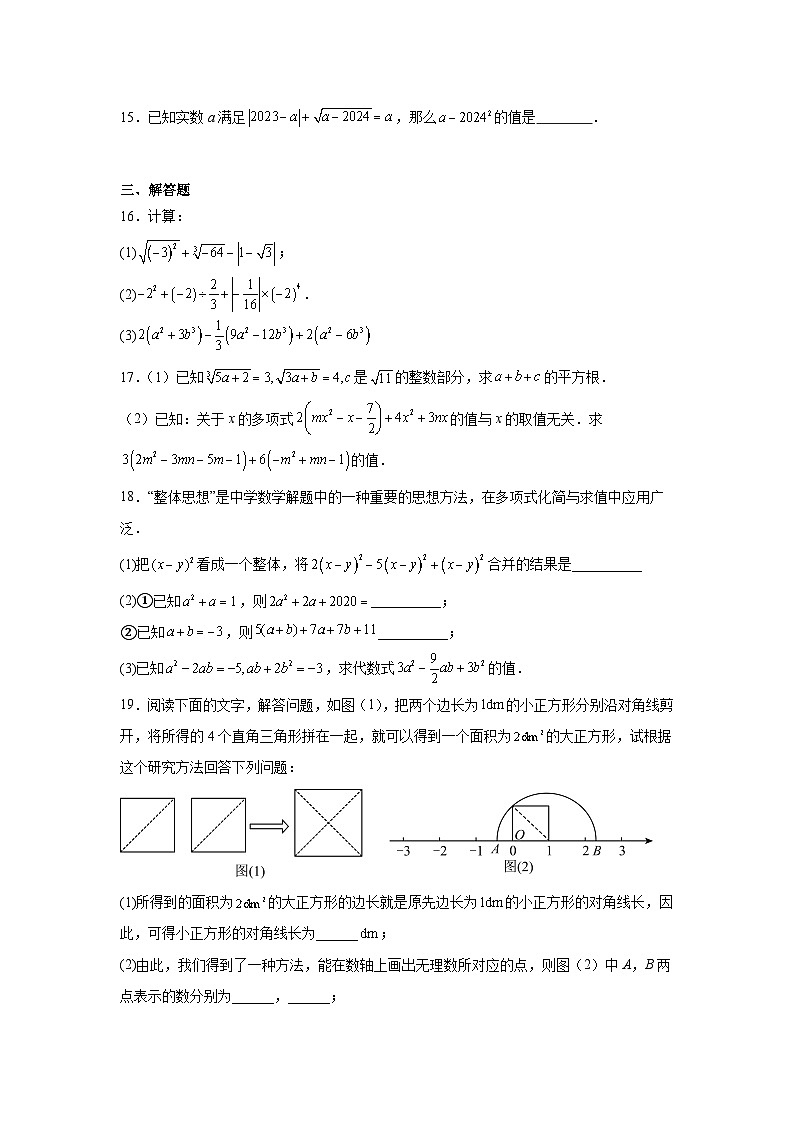 15．已知实数 a 满足 |2023−a|+√(a−2024)=a，那么 a−2024²的值是________．
三、解答题
16．计算：
(1) √((−3)²)+∛(−64)−|1−√3|；
(2) −2²+(−2)÷2/3+|−1/16|×(−2)⁴．
(3) 2(a²+3b³)−1/3(9a²−12b³)+2(a²−6b³)
17．（1）已知∛(5a+2)=3,√(3a+b)=4,c是√11的整数部分，求a+b+c的平方根．
（2）已知：关于 x 的多项式2(mx²−x−7/2)+4x²+3nx的值与 x 的取值无关．求
3(2m²−3mn−5m−1)+6(−m²+mn−1)的值．
18．“整体思想”是中学数学解题中的一种重要的思想方法，在多项式化简与求值中应用广
泛．
(1)把(x−y)²看成一个整体，将2(x−y)²−5(x−y)²+(x−y)²合并的结果是__________
(2)①已知a²+a=1，则2a²+2a+2020=__________；
②已知a+b=−3，则5(a+b)+7a+7b+11__________；
(3)已知a²−2ab=−5,ab+2b²=−3，求代数式3a²−9/2ab+3b²的值．
19．阅读下面的文字，解答问题，如图（1），把两个边长为1dm的小正方形分别沿对角线剪
开，将所得的 4 个直角三角形拼在一起，就可以得到一个面积为2dm²的大正方形，试根据
这个研究方法回答下列问题：
O
−3 −2 −1 A 0 1 2 B 3
图(1) 图(2)
(1)所得到的面积为2dm²的大正方形的边长就是原先边长为1dm的小正方形的对角线长，因
此，可得小正方形的对角线长为______dm；
(2)由此，我们得到了一种方法，能在数轴上画出无理数所对应的点，则图（2）中 A，B 两
点表示的数分别为______，______；